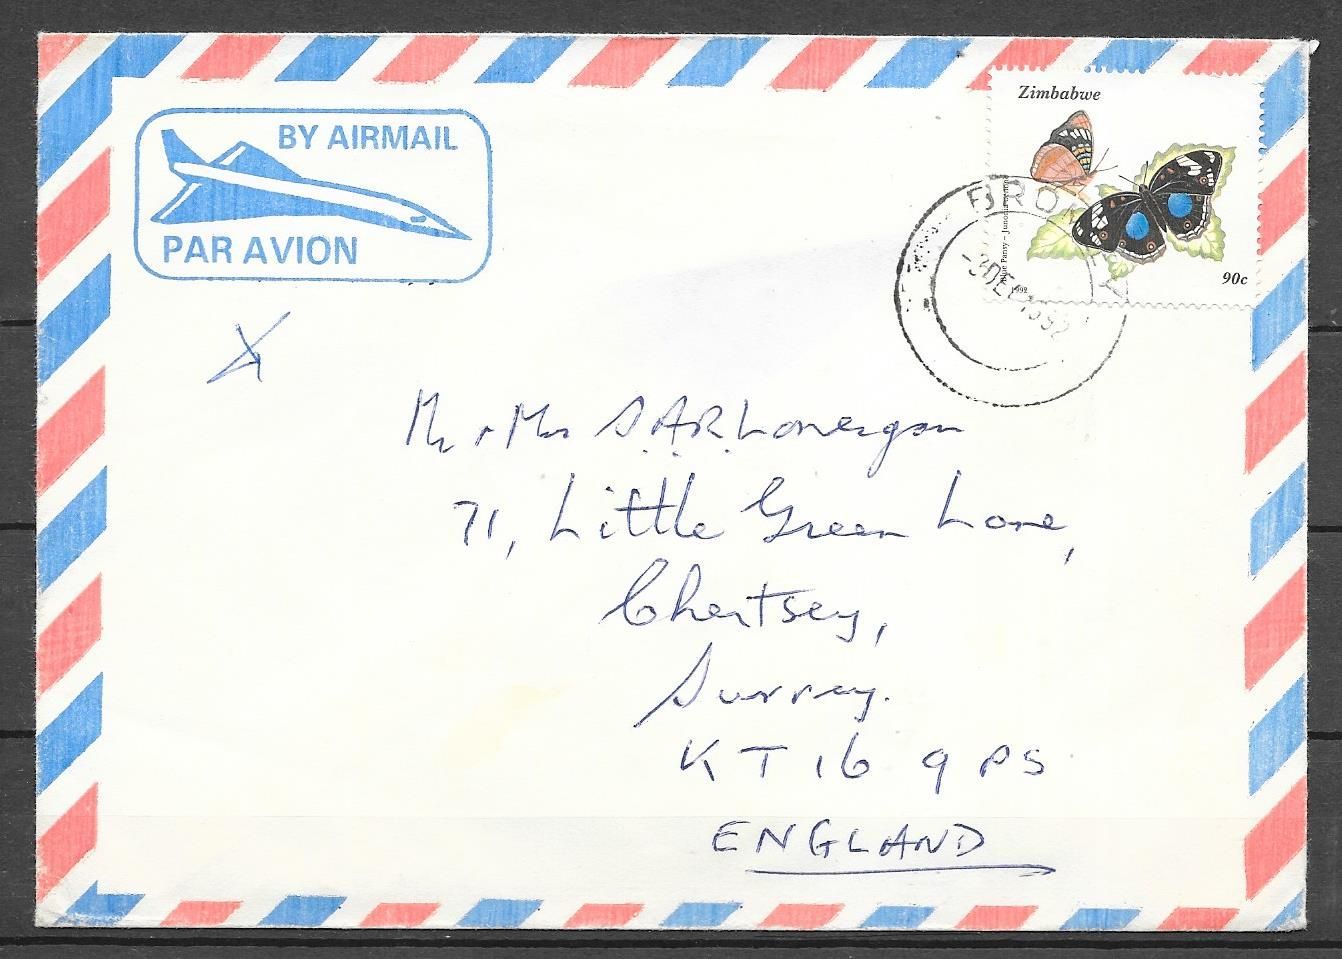 BY AIRMAIL
PAR AVION
Zimbabwe
Blue Pansy – Junonia
1992
90c
BROMLEY
-3 DEC 1992
Mr & Mrs S.A.R. Lonergan
71, Little Green Lane,
Chertsey,
Surrey.
KT16 9PS
ENGLAND